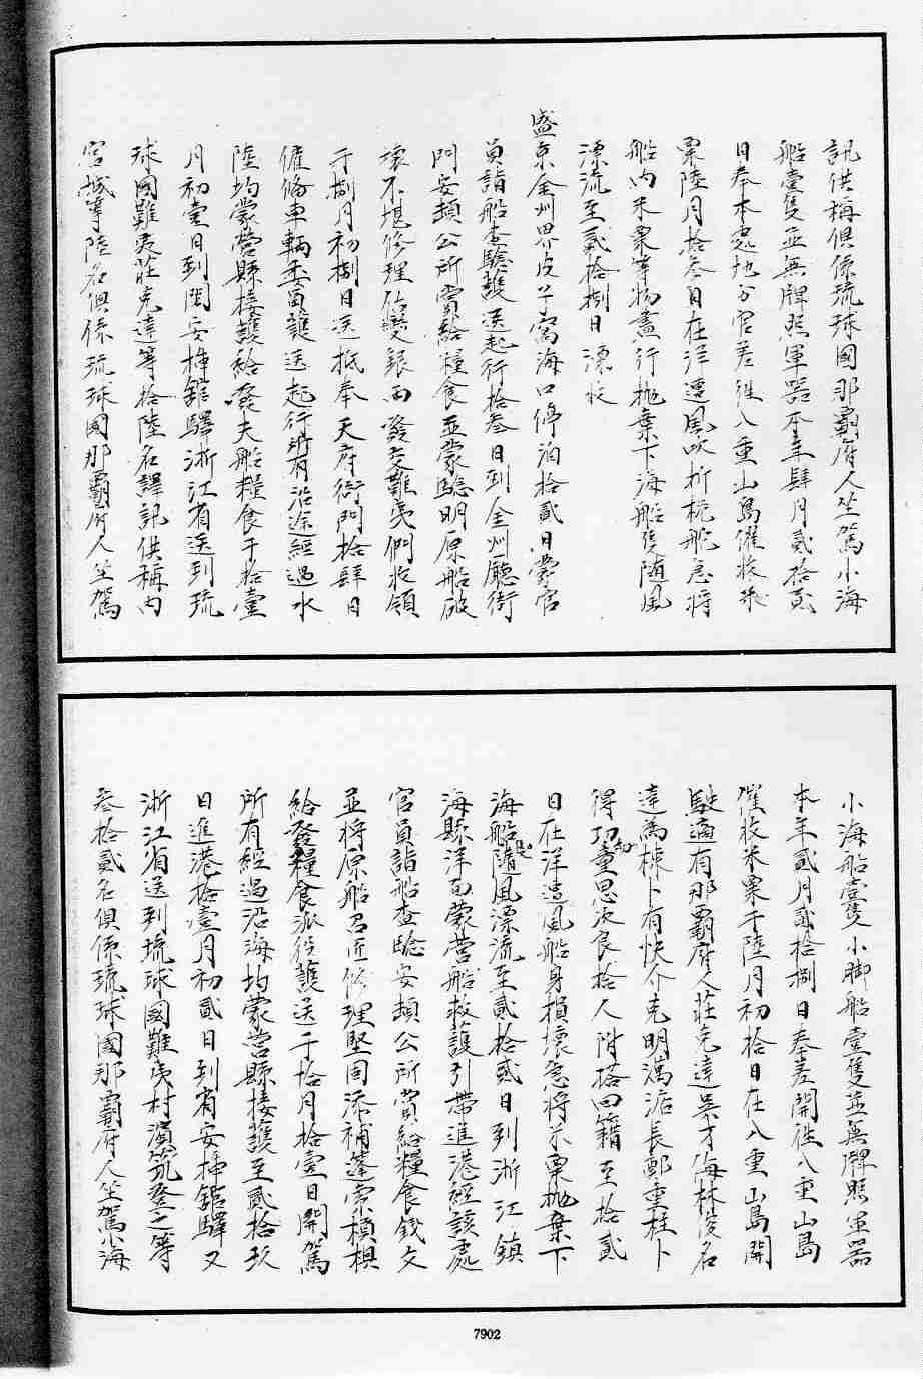 訊供稱俱係琉球國那霸府人坐駕小海
船壹隻並無牌照軍器本年肆月貳拾貳
日奉本處地方官差往八重山島催收米
粟陸月拾叁日在洋遭風吹折桅舵急將
船內米粟等物盡行拋棄下海船隻隨風
漂流至貳拾捌日漂收
盛京金州界皮子窩海口停泊拾貳日蒙官
員詣船查驗護送起行拾叁日到金州廳衙
門安頓公所賞給糧食並蒙驗明原船破
壞不堪修理估變銀兩發交難夷們收領
于捌月初捌日送抵奉天府衙門拾肆日
僱備車輛委員護送起行所有沿途經過水
陸均蒙營縣接護給發夫船糧食于拾壹
月初壹日到閩安插館驛浙江省送到琉
球國難夷莊克達等拾陸名譯訊供稱內
宮城等陸名俱係琉球國那霸府人坐駕
小海船壹隻小腳船壹隻並無牌照軍器
本年貳月貳拾捌日奉差開往八重山島
催收米粟于陸月初拾日在八重山島開
駛適有那霸府人莊克達吳才海林俊名
達為棟卜有快介克明滿沽長鄭重柱卜
得功童思次良拾人附搭回籍至拾貳
日在洋遭風船身損壞急將米粟拋棄下
海船隨風漂流至貳拾貳日到浙江鎮
海縣洋面蒙營船救護引帶進港經該處
官員詣船查驗安頓公所賞給糧食錢文
並將原船召匠修理堅固添補蓬索槓椇
給發糧食派役護送于拾月拾壹日開駕
所有經過沿海均蒙營縣接護至貳拾玖
日進港拾壹月初貳日到省安插館驛又
浙江省送到琉球國難夷村濱筑登之等
叁拾貳名俱係琉球國那霸府人坐駕小海
7902